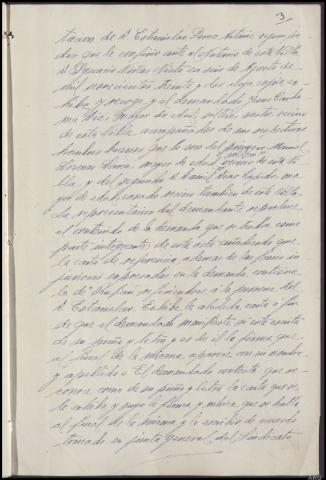 3
tación de D. Estanislao Perez Artime segun po-
der que le confirió ante el Notario de esta Villa
D. Dacario en seis de Agosto de
mil novecientos treinta y dos cuya copia ex-
hibe y recoge y el demandado Jesus
mayor de edad, soltero, vecino
de esta Villa acompañados de sus respectivos
hombres buenos que lo son del primero Manuel
Lorenzo mayor de edad soltero vecino de esta Vi-
lla y del segundo D. Camilo ma-
yor de edad casado vecino tambien de esta Villa
La representacion del demandante
el contenido de la demanda que se hallra como
parte integrante de este acto añadiendo que
la carta de referencia ademas de las frases in-
juriosas expresadas en la demanda contiene
la de para la persona del
D. Estanislao. Exhibe la aludida carta a fin
de que el demandado manifieste si está escrita
de su puño y letra y es de el la firma que
al final de la misma aparece con su nombre
y apellido = El demandado contesta que re-
conoce como de su puño y letra la carta que se
le exhibe y suya la firma y rubrica que se halla
al final de la misma y la escribió de acuerdo
tomado en junta General del Sindicato